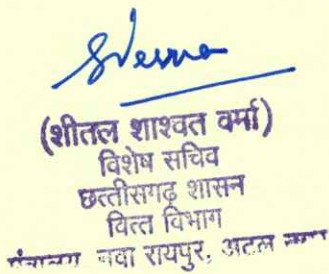 SVerma
(शीतल शाश्वत वर्मा)
विशेष सचिव
छत्तीसगढ़ शासन
वित्त विभाग
मंत्रालय नवा रायपुर, अटल नगर